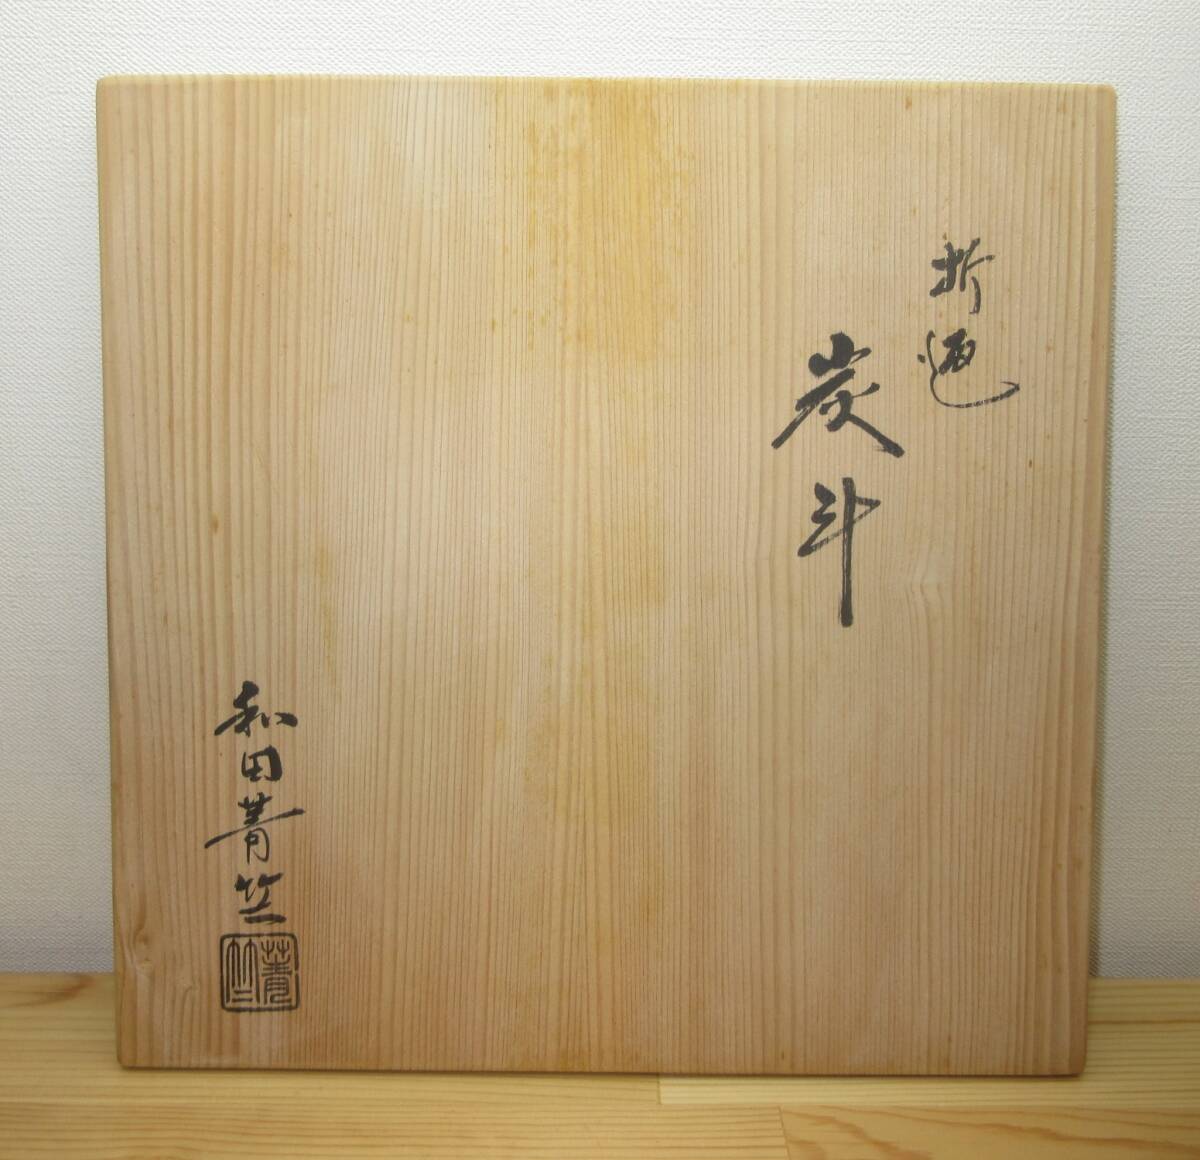 折
炭斗
和田菁竺
菁竺